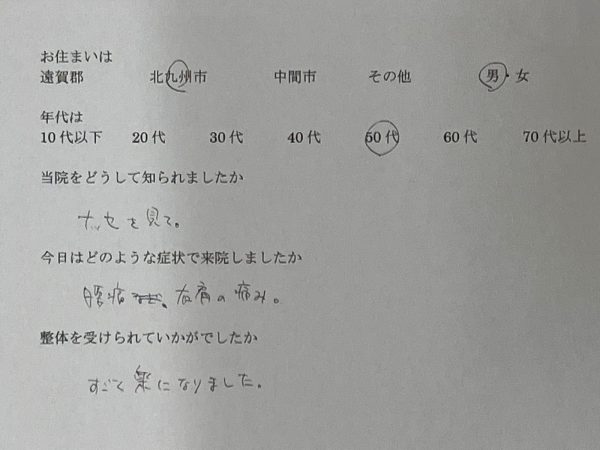 お住まいは
遠賀郡 北九州市 中間市 その他 男・女
年代は
10代以下 20代 30代 40代 50代 60代 70代以上
当院をどうして知られましたか
ナッセを見て。
今日はどのような症状で来院しましたか
腰痛 、右肩の痛み。
整体を受けられていかがでしたか
すごく楽になりました。